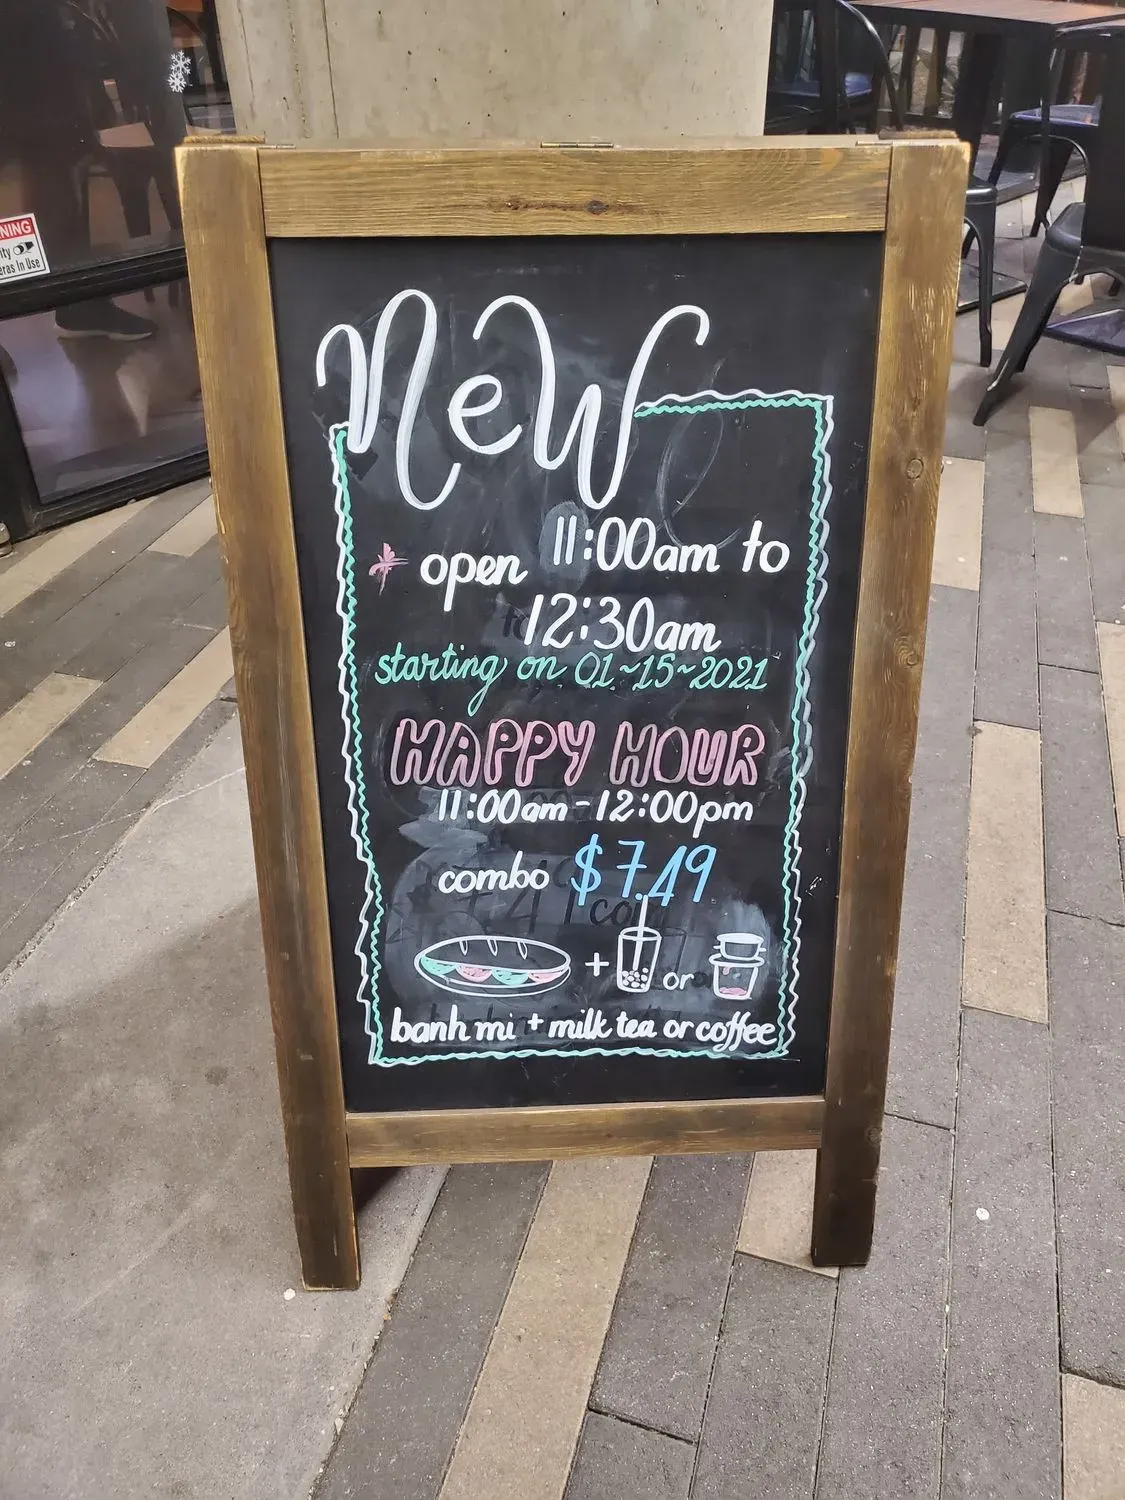 NING
ity
eras In Use
new
open 11:00am to
12:30am
starting on 01~15~2021
HAPPY HOUR
11:00am - 12:00pm
combo $7.49
+ or
banh mi + milk tea or coffee